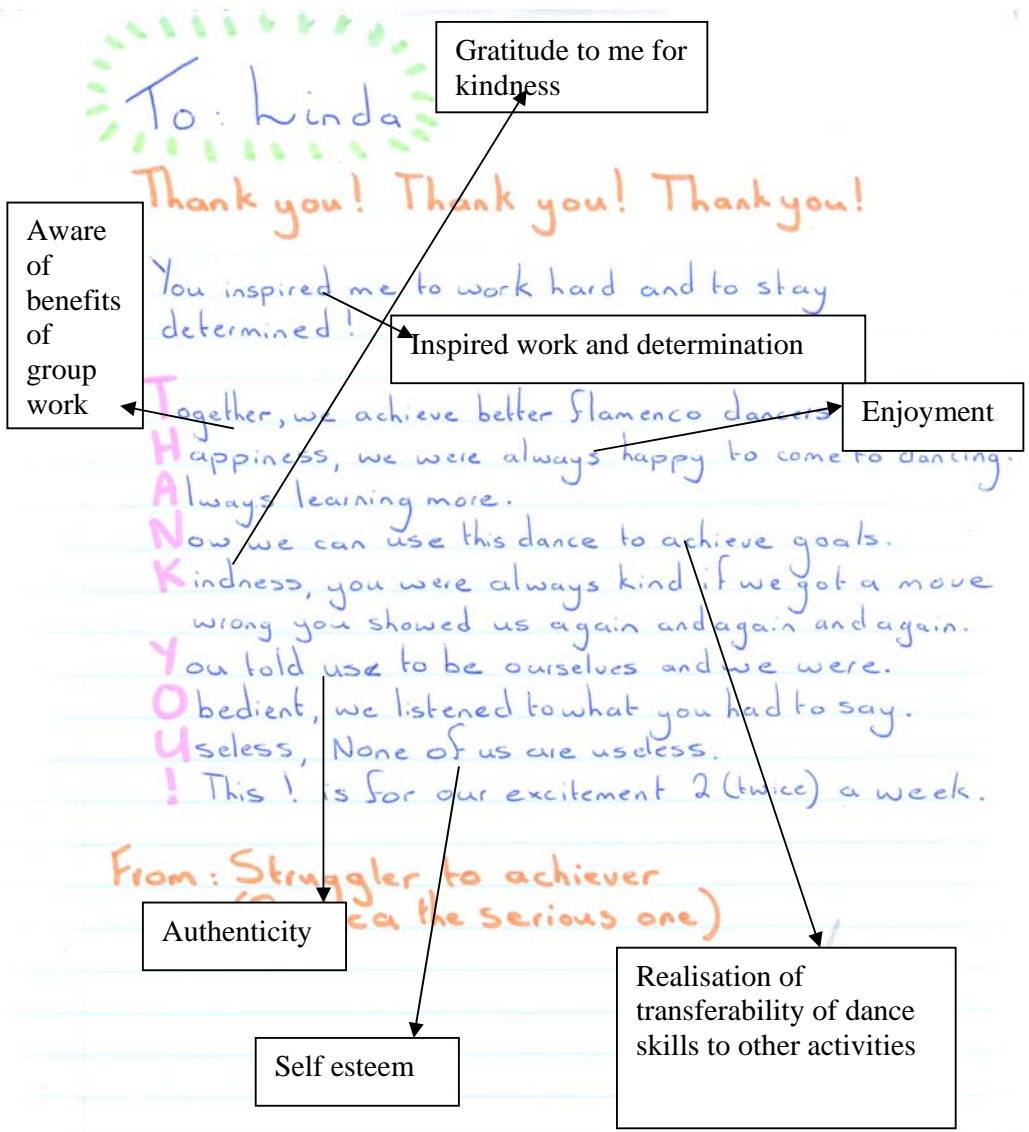 Gratitude to me for
kindness
To: Linda
Thank you! Thank you! Thank you!
Aware
of
benefits
of
group
work
You inspired me to work hard and to stay
determined!
Inspired work and determination
Together, we achieve better flamenco dancers
Enjoyment
Happiness, we were always happy to come to dancing.
Always learning more.
Now we can use this dance to achieve goals.
Kindness, you were always kind if we got a move
wrong you showed us again and again and again.
You told use to be ourselves and we were.
Obedient, we listened to what you had to say.
Useless, None of us are useless.
! This ! is for our excitement 2 (twice) a week.
From: Struggler to achiever
the serious one)
Authenticity
Realisation of
transferability of dance
skills to other activities
Self esteem